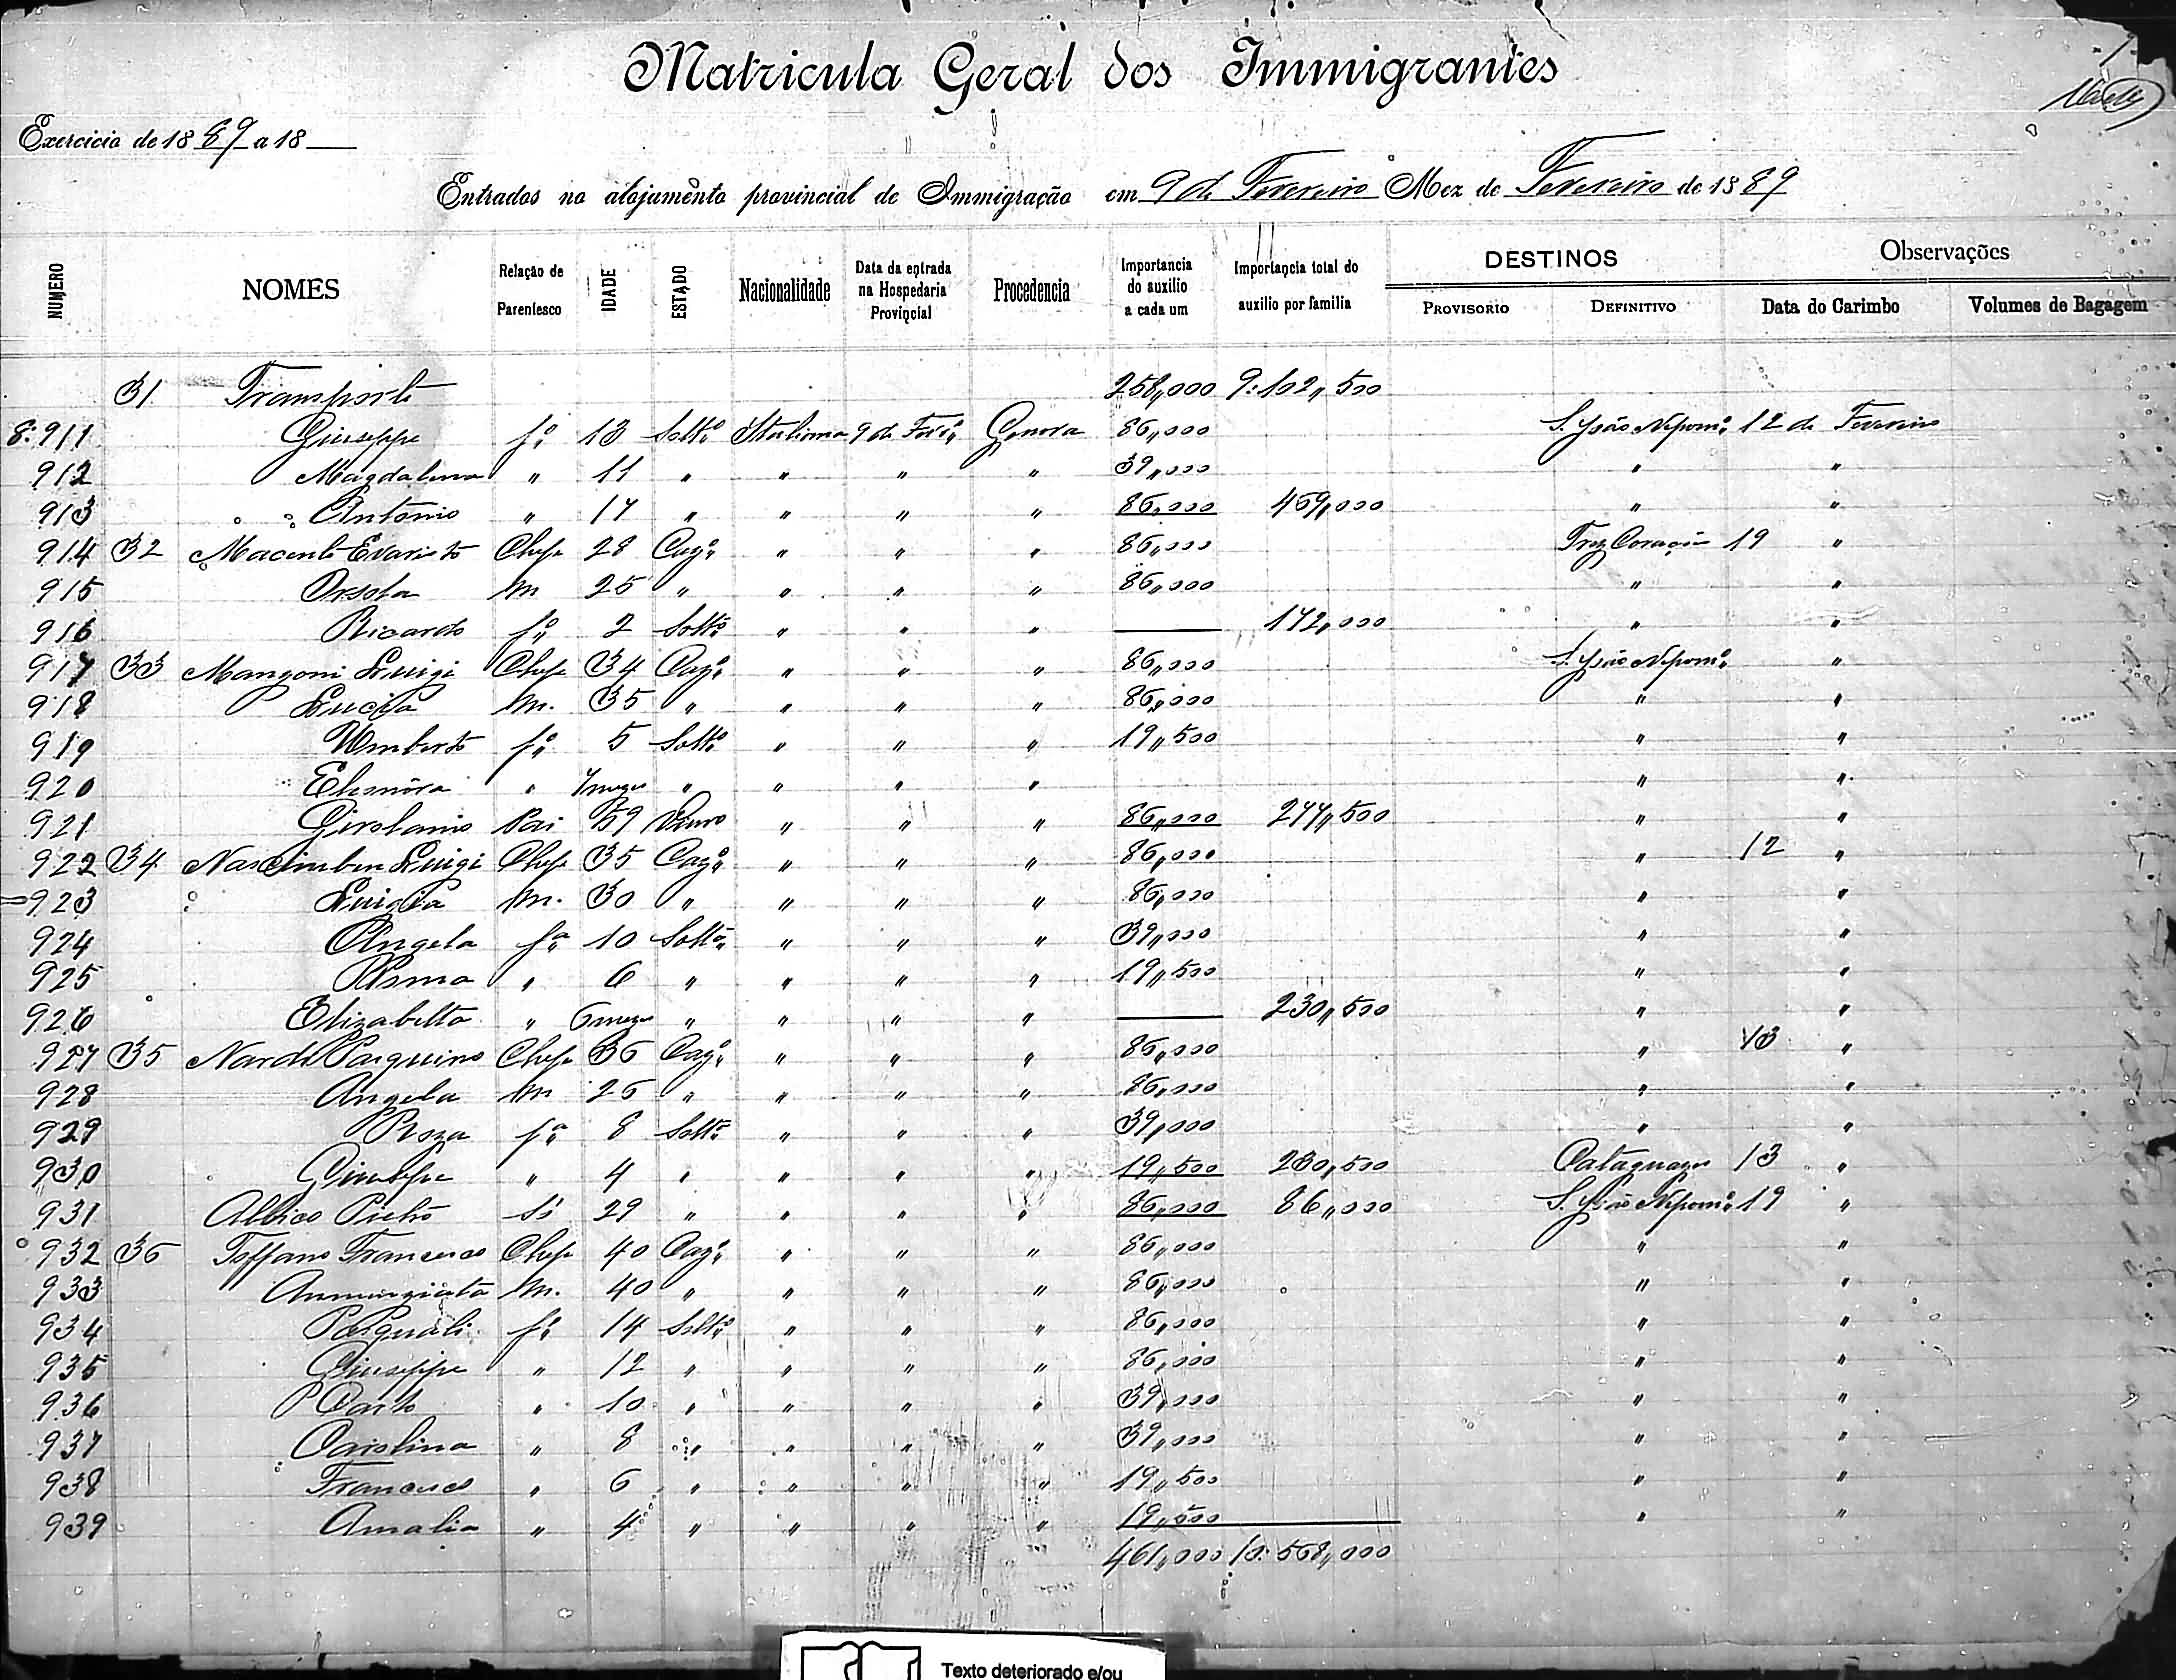 Matricula Geral dos Immigrantes
Exercicio de 1889 a 18
Entrados no alojamento provincial de Immigração em 9 de Fevereiro Mez de Fevereiro de 1889
NUMERO NOMES Relação de Parentesco IDADE ESTADO Nacionalidade Data da entrada na Hospedaria Provincial Procedencia Importancia do auxilio a cada um Importancia total do auxilio por familia DESTINOS PROVISORIO DEFINITIVO Observações Data do Carimbo Volumes de Bagagem
31 Transporte 258,,000 9:102,,500
8:911 Giuseppe fº 13 Soltº Italiana 9 de Fevº Genova 86,,000 S. João Nepomº 12 de Fevereiro
912 Magdalena " 11 " " " " 39,,000 " "
913 Antonio " 17 " " " " 86,,000 469,,000 " "
914 32 Macente Evaristo Chefe 28 Cazº " " " 86,,000 Trez Corações 19 "
915 Orsola M 25 " " " " 86,,000 " "
916 Ricardo fº 2 Soltº " " " 172,,000 " "
917 33 Mangoni Luigi Chefe 34 Cazº " " " 86,,000 S. João Nepomº "
918 Lucia M. 35 " " " " 86,,000 " "
919 Umberto fº 5 Soltº " " " 19,,500 " "
920 Eleonóra " 7 mezes " " " " " "
921 Girolamo Pai 59 Viuvo " " " 86,,000 277,,500 " "
922 34 Nascimben Luigi Chefe 35 Cazº " " " 86,,000 " 12 "
923 Luigia M. 30 " " " " 86,,000 " "
924 Angela fª 10 Soltª " " " 39,,000 " "
925 " 6 " " " " 19,,500 " "
926 Elizabetta " 6 mezes " " " " 230,,500 " "
927 35 Nardi Pasquino Chefe 36 Cazº " " " 86,,000 " 13 "
928 Angela M 26 " " " " 86,,000 " "
929 Roza fª 8 Soltª " " " 39,,000 " "
930 Giuseppe " 4 " " " " 19,,500 230,,500 Cataguazes 13 "
931 Albico Pietro Só 29 " " " " 86,,000 86,,000 S. João Nepomº 19 "
932 36 Toffano Francesco Chefe 40 Cazº " " " 86,,000 " "
933 Annunziata M. 40 " " " " 86,,000 " "
934 Pasquali fº 14 Soltº " " " 86,,000 " "
935 Giuseppe " 12 " " " " 86,,000 " "
936 Carlo " 10 " " " " 39,,000 " "
937 Carolina " 8 " " " " 39,,000 " "
938 Francesco " 6 " " " " 19,,500 " "
939 Amalia " 4 " " " " 19,,500 " "
461,,000 10:568,,000
Texto deteriorado e/ou